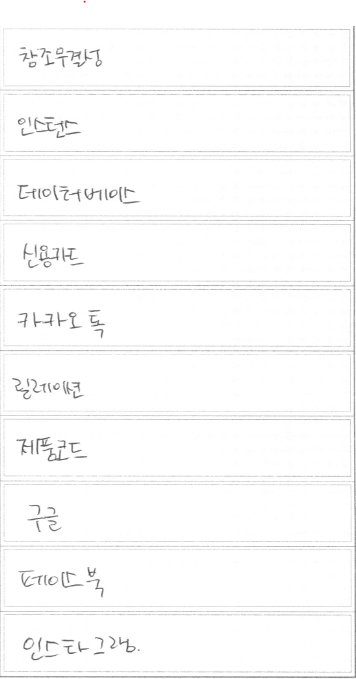 참조무결성
인스턴스
데이터베이스
신용카드
카카오톡
릴레이션
제품코드
구글
페이스북
인스타그램.